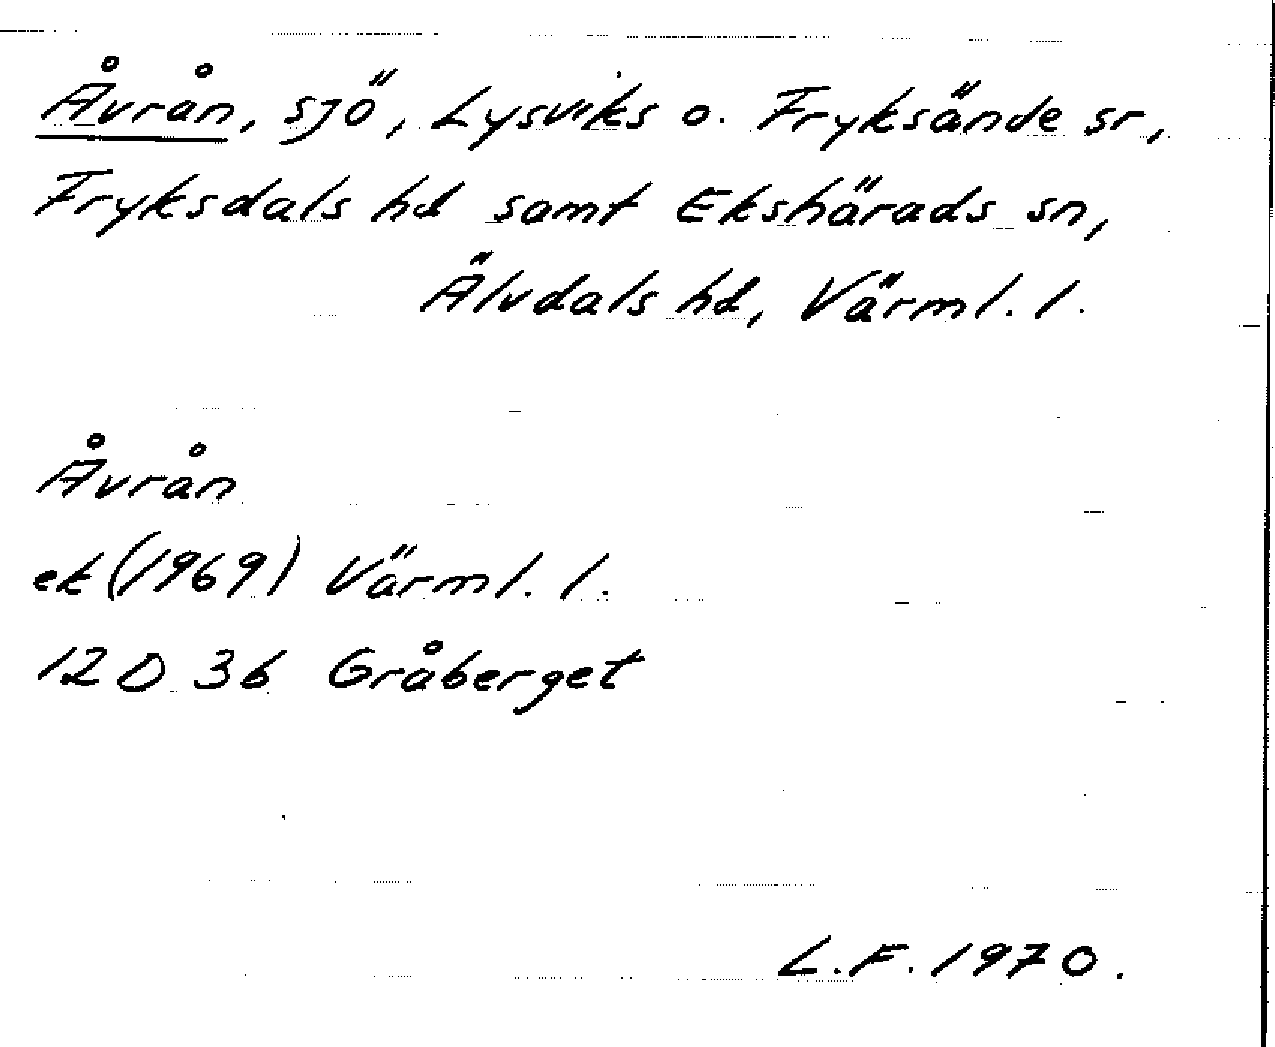 Åvrån, sjö, Lysviks o. Fryksände sr,
Fryksdals hd samt Ekshärads sn,
Älvdals hd, Värml. l.
Åvrån
ek (1969) Värml. l.
12 D 3b Gråberget
L.F. 1970.